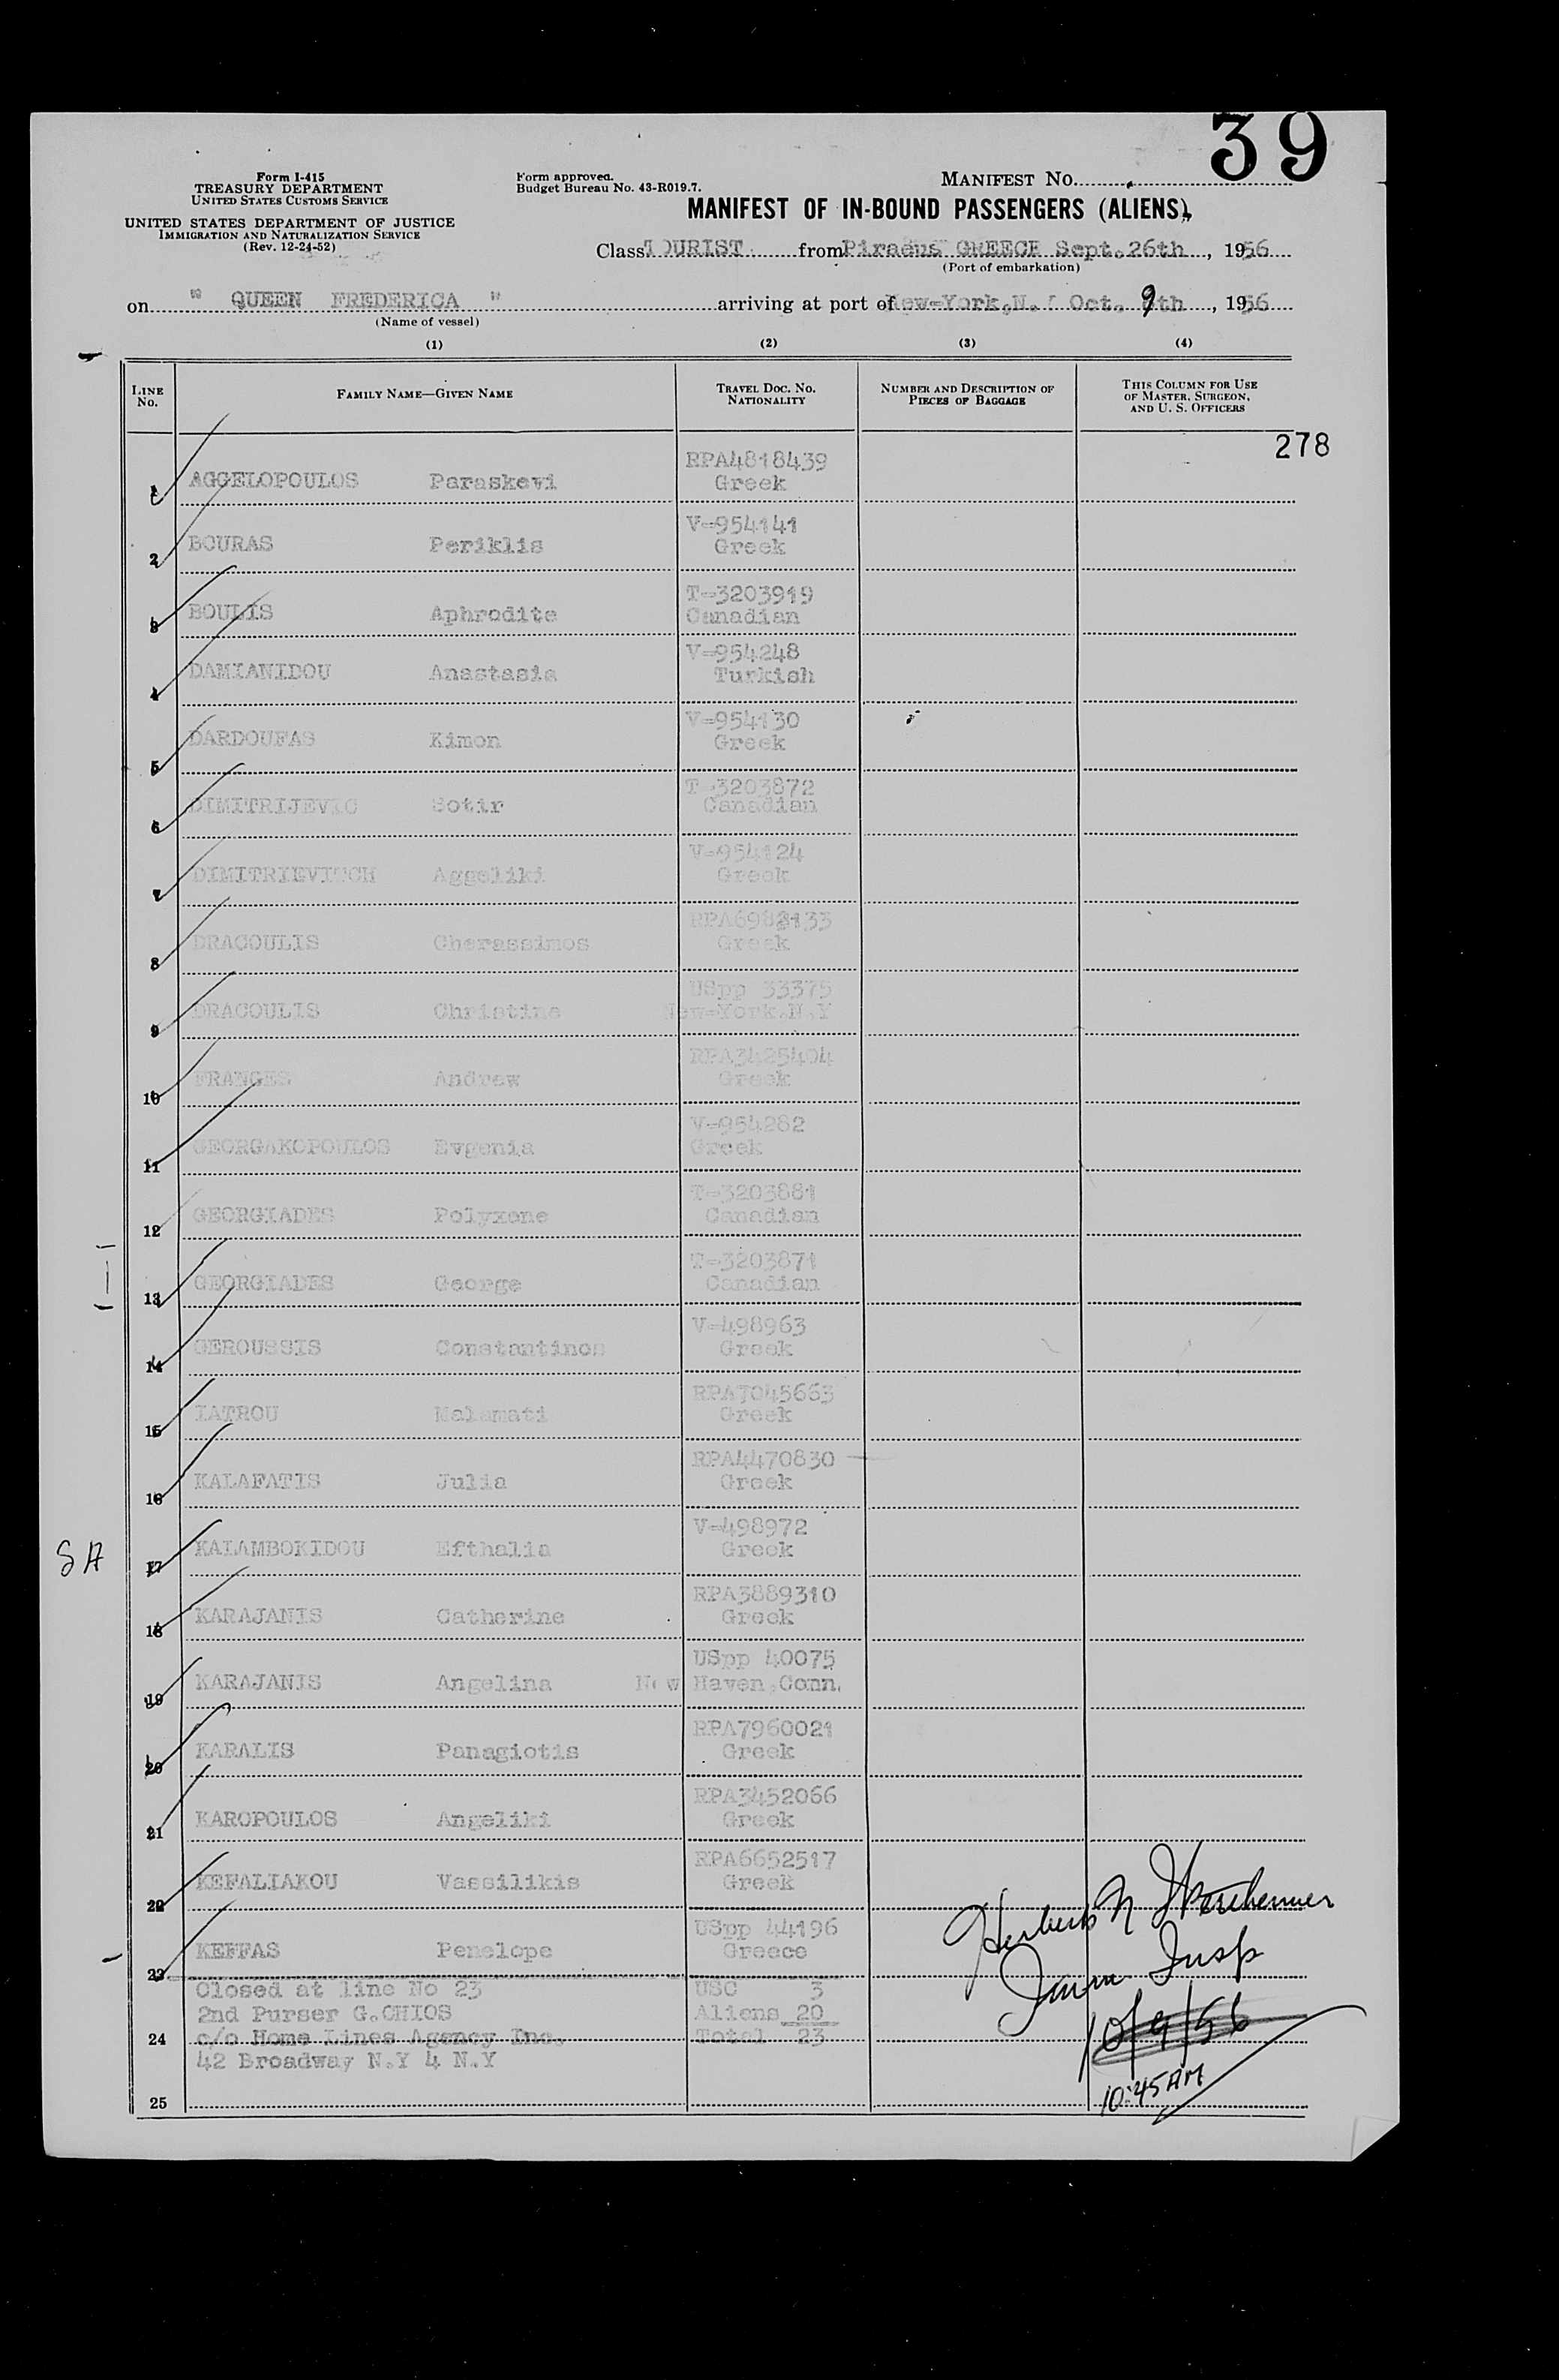 39
Form I-415
TREASURY DEPARTMENT
UNITED STATES CUSTOMS SERVICE
UNITED STATES DEPARTMENT OF JUSTICE
IMMIGRATION AND NATURALIZATION SERVICE
(Rev. 12-24-52)
Form approved.
Budget Bureau No. 43-R019.7.
MANIFEST NO.
MANIFEST OF IN-BOUND PASSENGERS (ALIENS)
Class TOURIST from Piraeus GREECE Sept. 26th, 1956
(Port of embarkation)
on " QUEEN FREDERICA " arriving at port of New-York, N. Oct. 9th, 1956
(Name of vessel)
(1) (2) (3) (4)
LINE No. FAMILY NAME—GIVEN NAME TRAVEL DOC. NO. NATIONALITY NUMBER AND DESCRIPTION OF PIECES OF BAGGAGE THIS COLUMN FOR USE OF MASTER, SURGEON, AND U. S. OFFICERS
278
1 AGGELOPOULOS Paraskevi RPA4818439 Greek
2 BOURAS Periklis V-954141 Greek
3 BOULIS Aphrodite T-3203919 Canadian
4 DAMIANIDOU Anastasia V-954248 Turkish
5 DARDOUFAS Kimon V-954130 Greek
6 DIMITRIJEVIC Sotir T-3203872 Canadian
7 DIMITRIEVITCH Aggeliki V-954124 Greek
8 DRACOULIS Gherassimos RPA6982133 Greek
9 DRACOULIS Christine USpp 33375 New-York.N.Y
10 FRANGES Andrew RPA3425404 Greek
11 GEORGAKOPOULOS Evgenia V-954282 Greek
12 GEORGIADES Polyxene T-3203881 Canadian
13 GEORGIADES George T-3203871 Canadian
14 GEROUSSIS Constantinos V-498963 Greek
15 IATROU Malamati RPA7045663 Greek
16 KALAFATIS Julia RPA4470830 Greek
SA
17 KALAMBOKIDOU Efthalia V-498972 Greek
18 KARAJANIS Catherine RPA3889310 Greek
19 KARAJANIS Angelina USpp 40075 New Haven, Conn.
20 KARALIS Panagiotis RPA7960021 Greek
21 KAROPOULOS Angeliki RPA3452066 Greek
22 KEFALIAKOU Vassilikis RPA6652517 Greek
23 KEFFAS Penelope USpp 44196 Greece
Closed at line No 23 USC 3
2nd Purser G.CHIOS Aliens 20
24 c/o Home Lines Agency Inc. Total 23
42 Broadway N.Y 4 N.Y
25
Herbert N
Imm Insp
10/9/56
10:45 AM